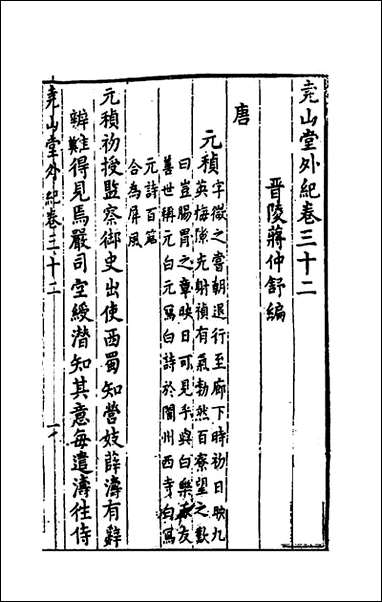 堯山堂外紀卷三十二
晋陵蔣仲舒編
唐
元稹
字微之嘗朝退行至廊下時初日映九
英梅隙光射稹有氣勃然百寮望之歎
曰豈腸胃之章映日可見乎與白樂天友
善世稱元白元寫白詩於閬州西寺白寫
元詩百篇
合為屏風
元稹初授監察御史出使西蜀知營妓薛濤有辭
辯難得見焉嚴司空綬潜知其意每遣濤往侍
堯山堂外紀卷三十二
一